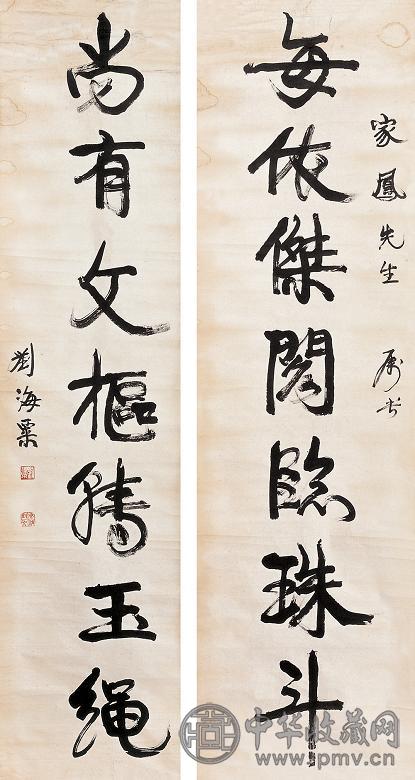 家鳳先生 属书
每依傑閣臨珠斗
尚有文樞騰玉繩
劉海粟
中华收藏网
www.spmv.com